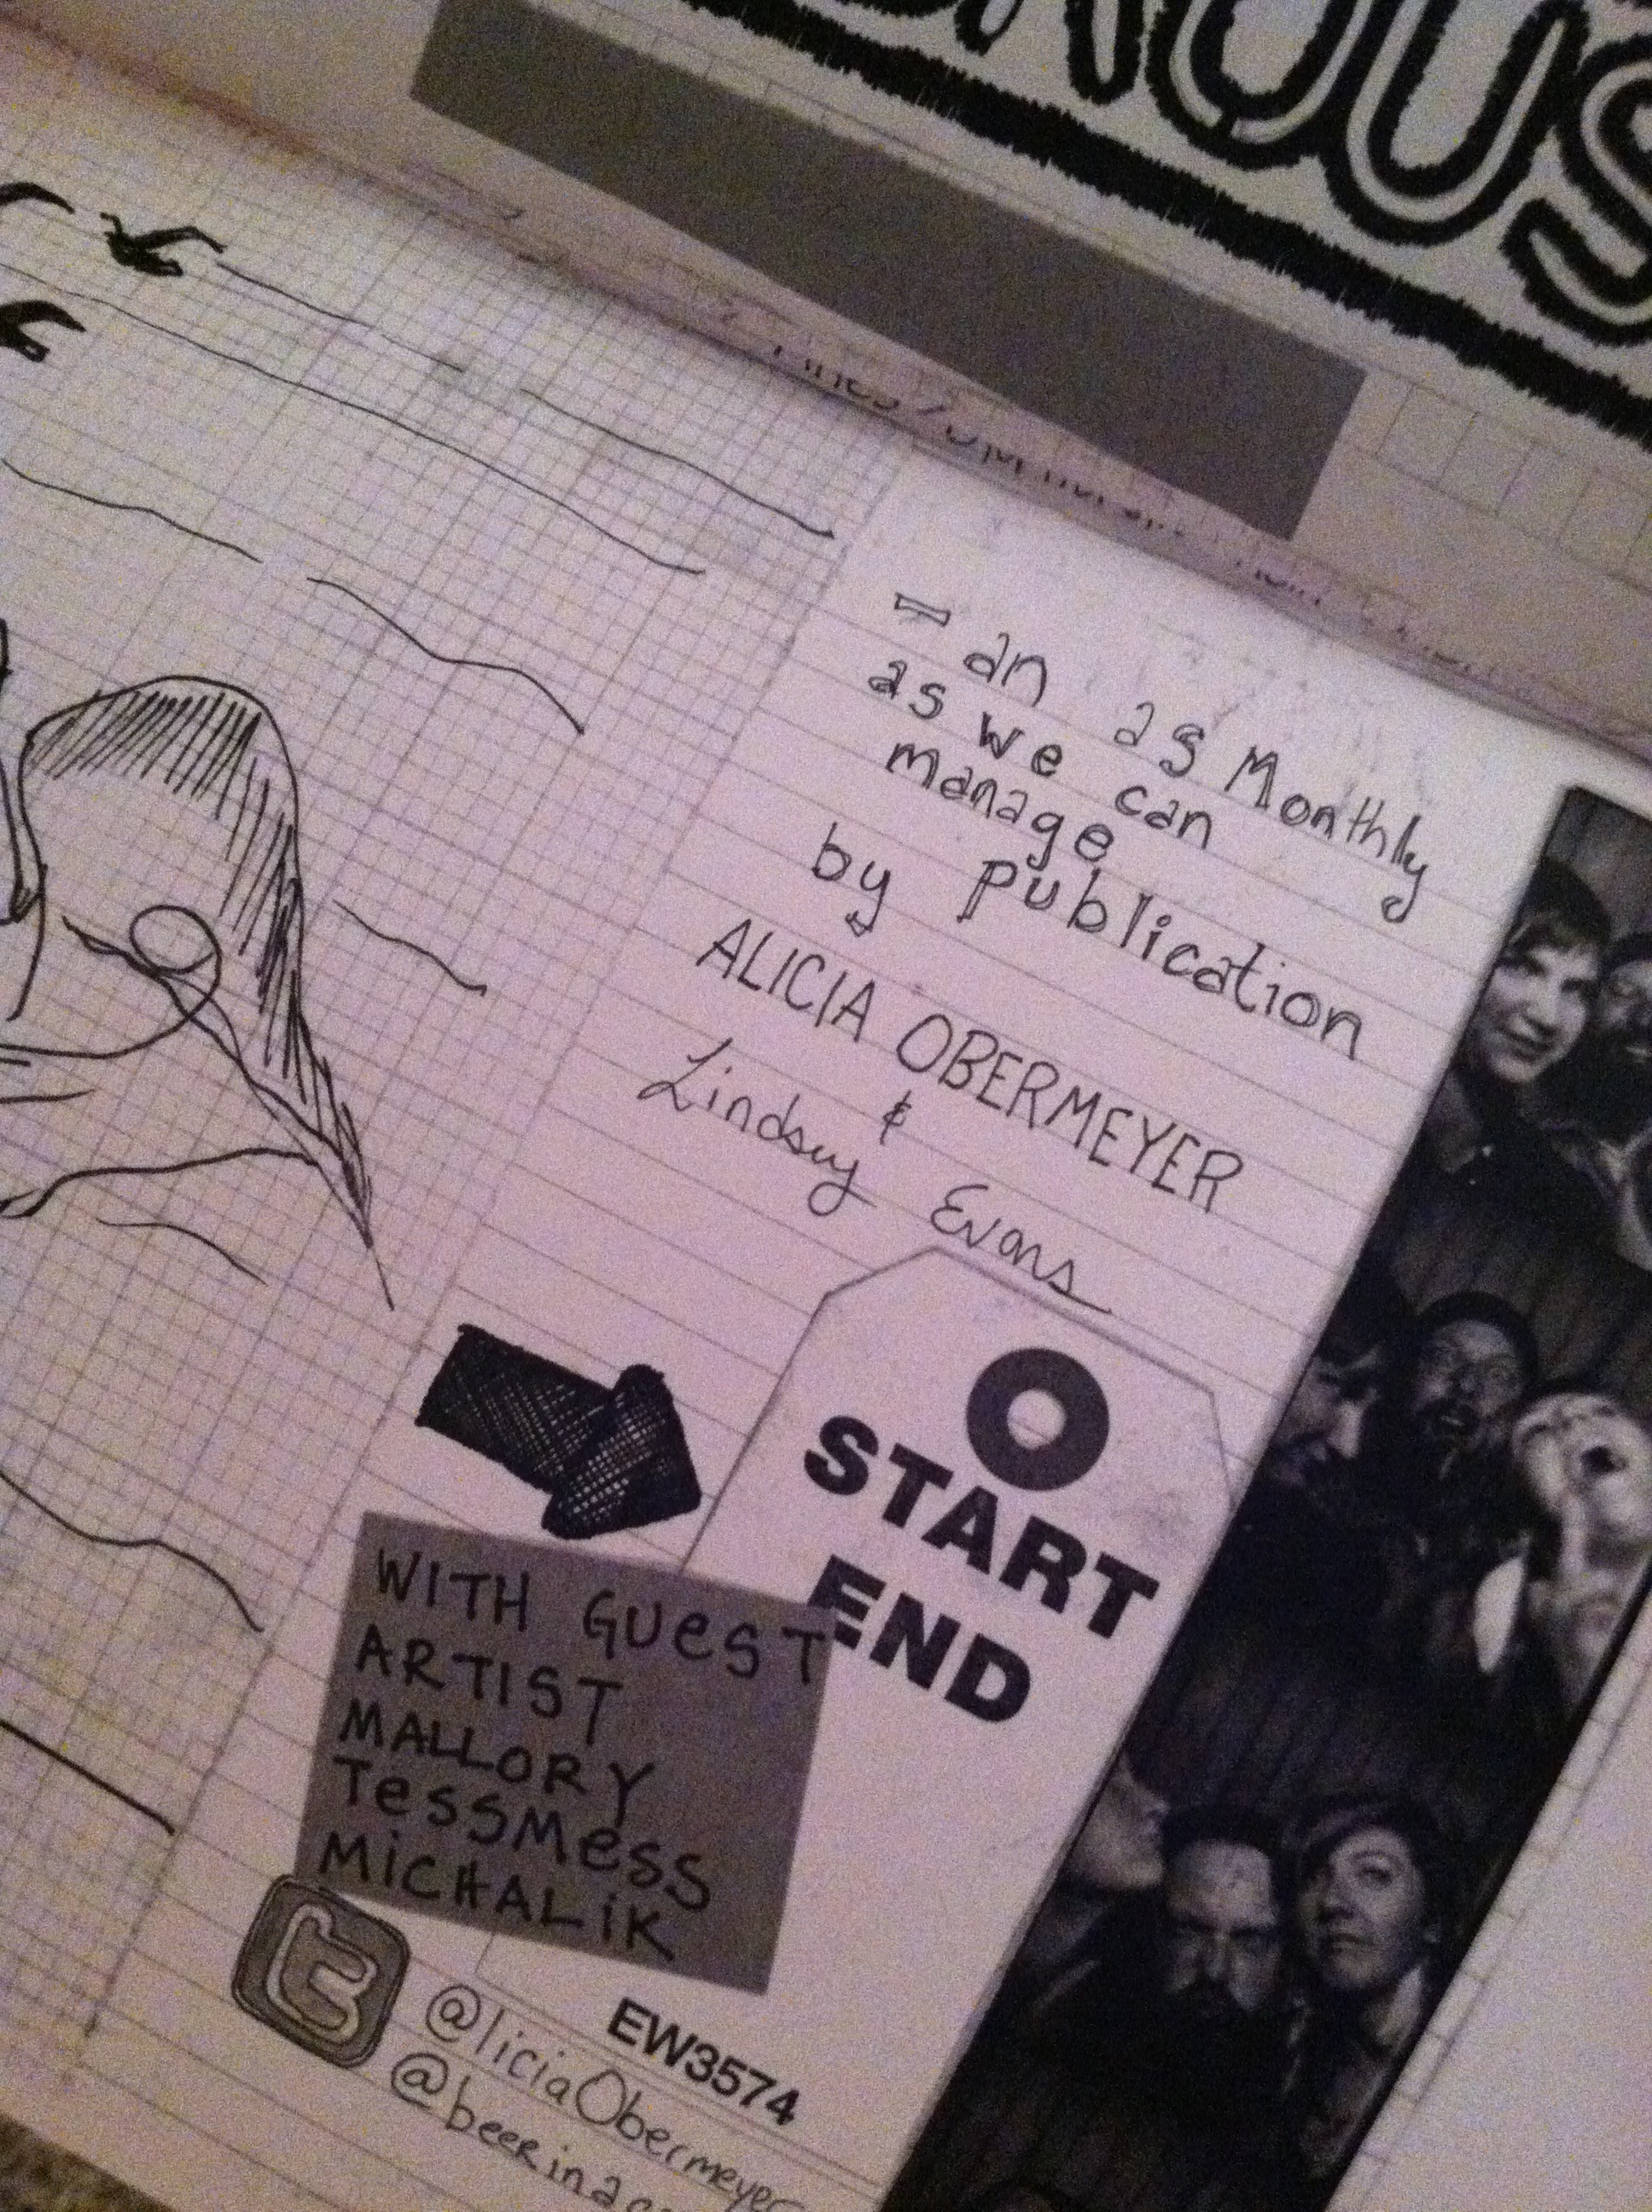 - an as Monthly
as we can
manage
publication
by
ALICIA OBERMEYER
&
Lindsey Evans
START
END
WITH GUesT
ARTIST
MALLORY
TessMess
MiCHALiK
EW3574
@liciaObermeyer